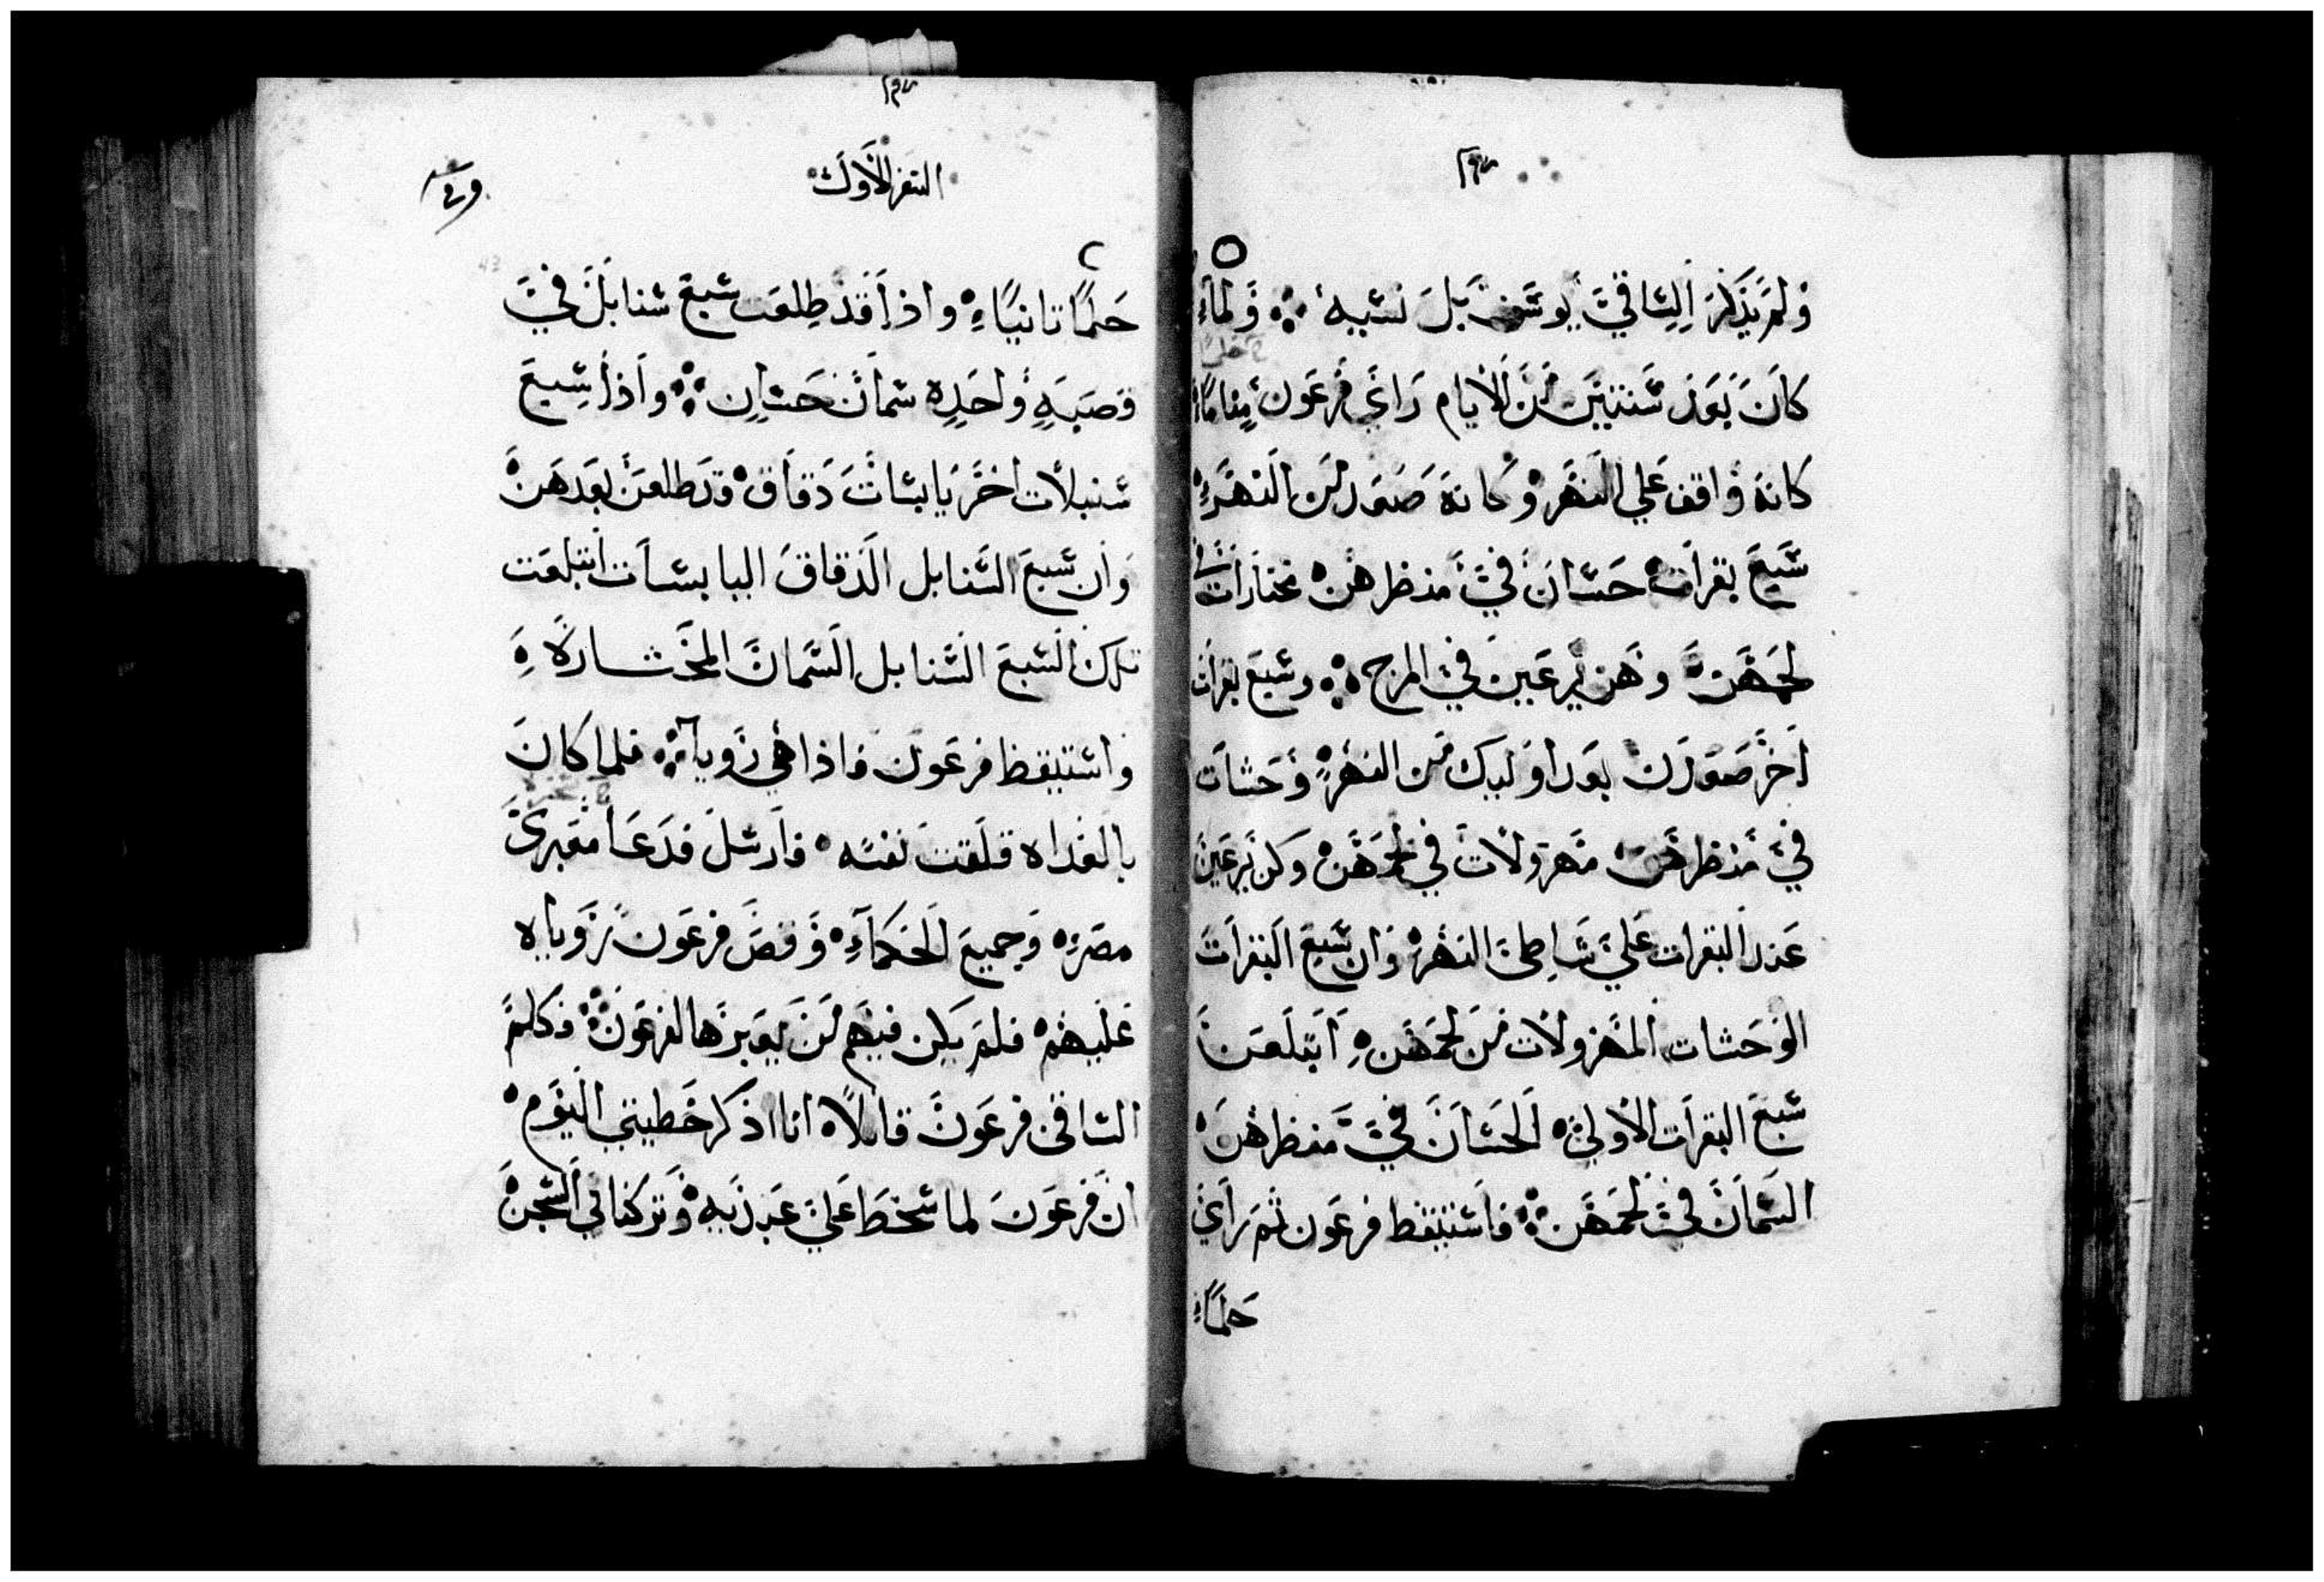 ولم يذكر الساقي يوسف بل نسيه ولما
كان بعد سنتين من الايام راي فرعون مناما
كانه واقف علي النهر وكانه صعدن من النهر
سبع بقرات حسان في منظرهن مختارات في
لحمهن وهن يرعين في المرج وسبع بقرات
اخر صعدن بعد اوليك من النهر وحشات
في منظرهن مهزولات في لحمهن وكن يرعين
عند البقرات علي شاطئ النهر وان سبع البقرات
الوحشات المهزولات من لحمهن ابتلعن
سبع البقرات الاولي الحسان في منظرهن
السمان في لحمهن فاستيقظ فرعون ثم راي
حلما
السفر الاول
حلما تانيا واذا قد طلعت سبع سنابل في
قصبه واحده سمان حسان واذا سبع
سنبلات اخر يابسات دقاق قد طلعن بعدهن
وان سبع السنابل الدقاق اليابسات ابتلعت
تلك السبع السنابل السمان المختاره
واستيقظ فرعون فاذا هي رويا فلما كان
بالغداه قلقت نفسه فارسل فدعا مفسرى
مصر وجميع الحكماء وقص فرعون روياه
عليهم فلم يكن فيهم من يعبرها لفرعون فكلم
الساقى فرعون قايلا انا اذكر خطيتي اليوم
ان فرعون لما سخط علي عبديه وتركنا في السجن